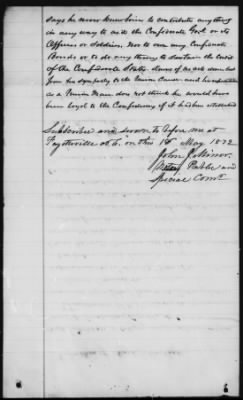 says he never knew him to contribute anything
in any way to aid the Confederate Govt or its
Officers or Soldiers. Nor to own any Confederate
Bonds or to do anything to sustain the credit
of the Confederate States
from his sympathy to the Union Cause and his reputation
as a Union Man does not think he would have
been loyal to the Confederacy if it had been established
Subscribed and sworn to before me at
Fayetteville N.C. on this 18 May 1872
John
Notary Public and
Special Comr
6